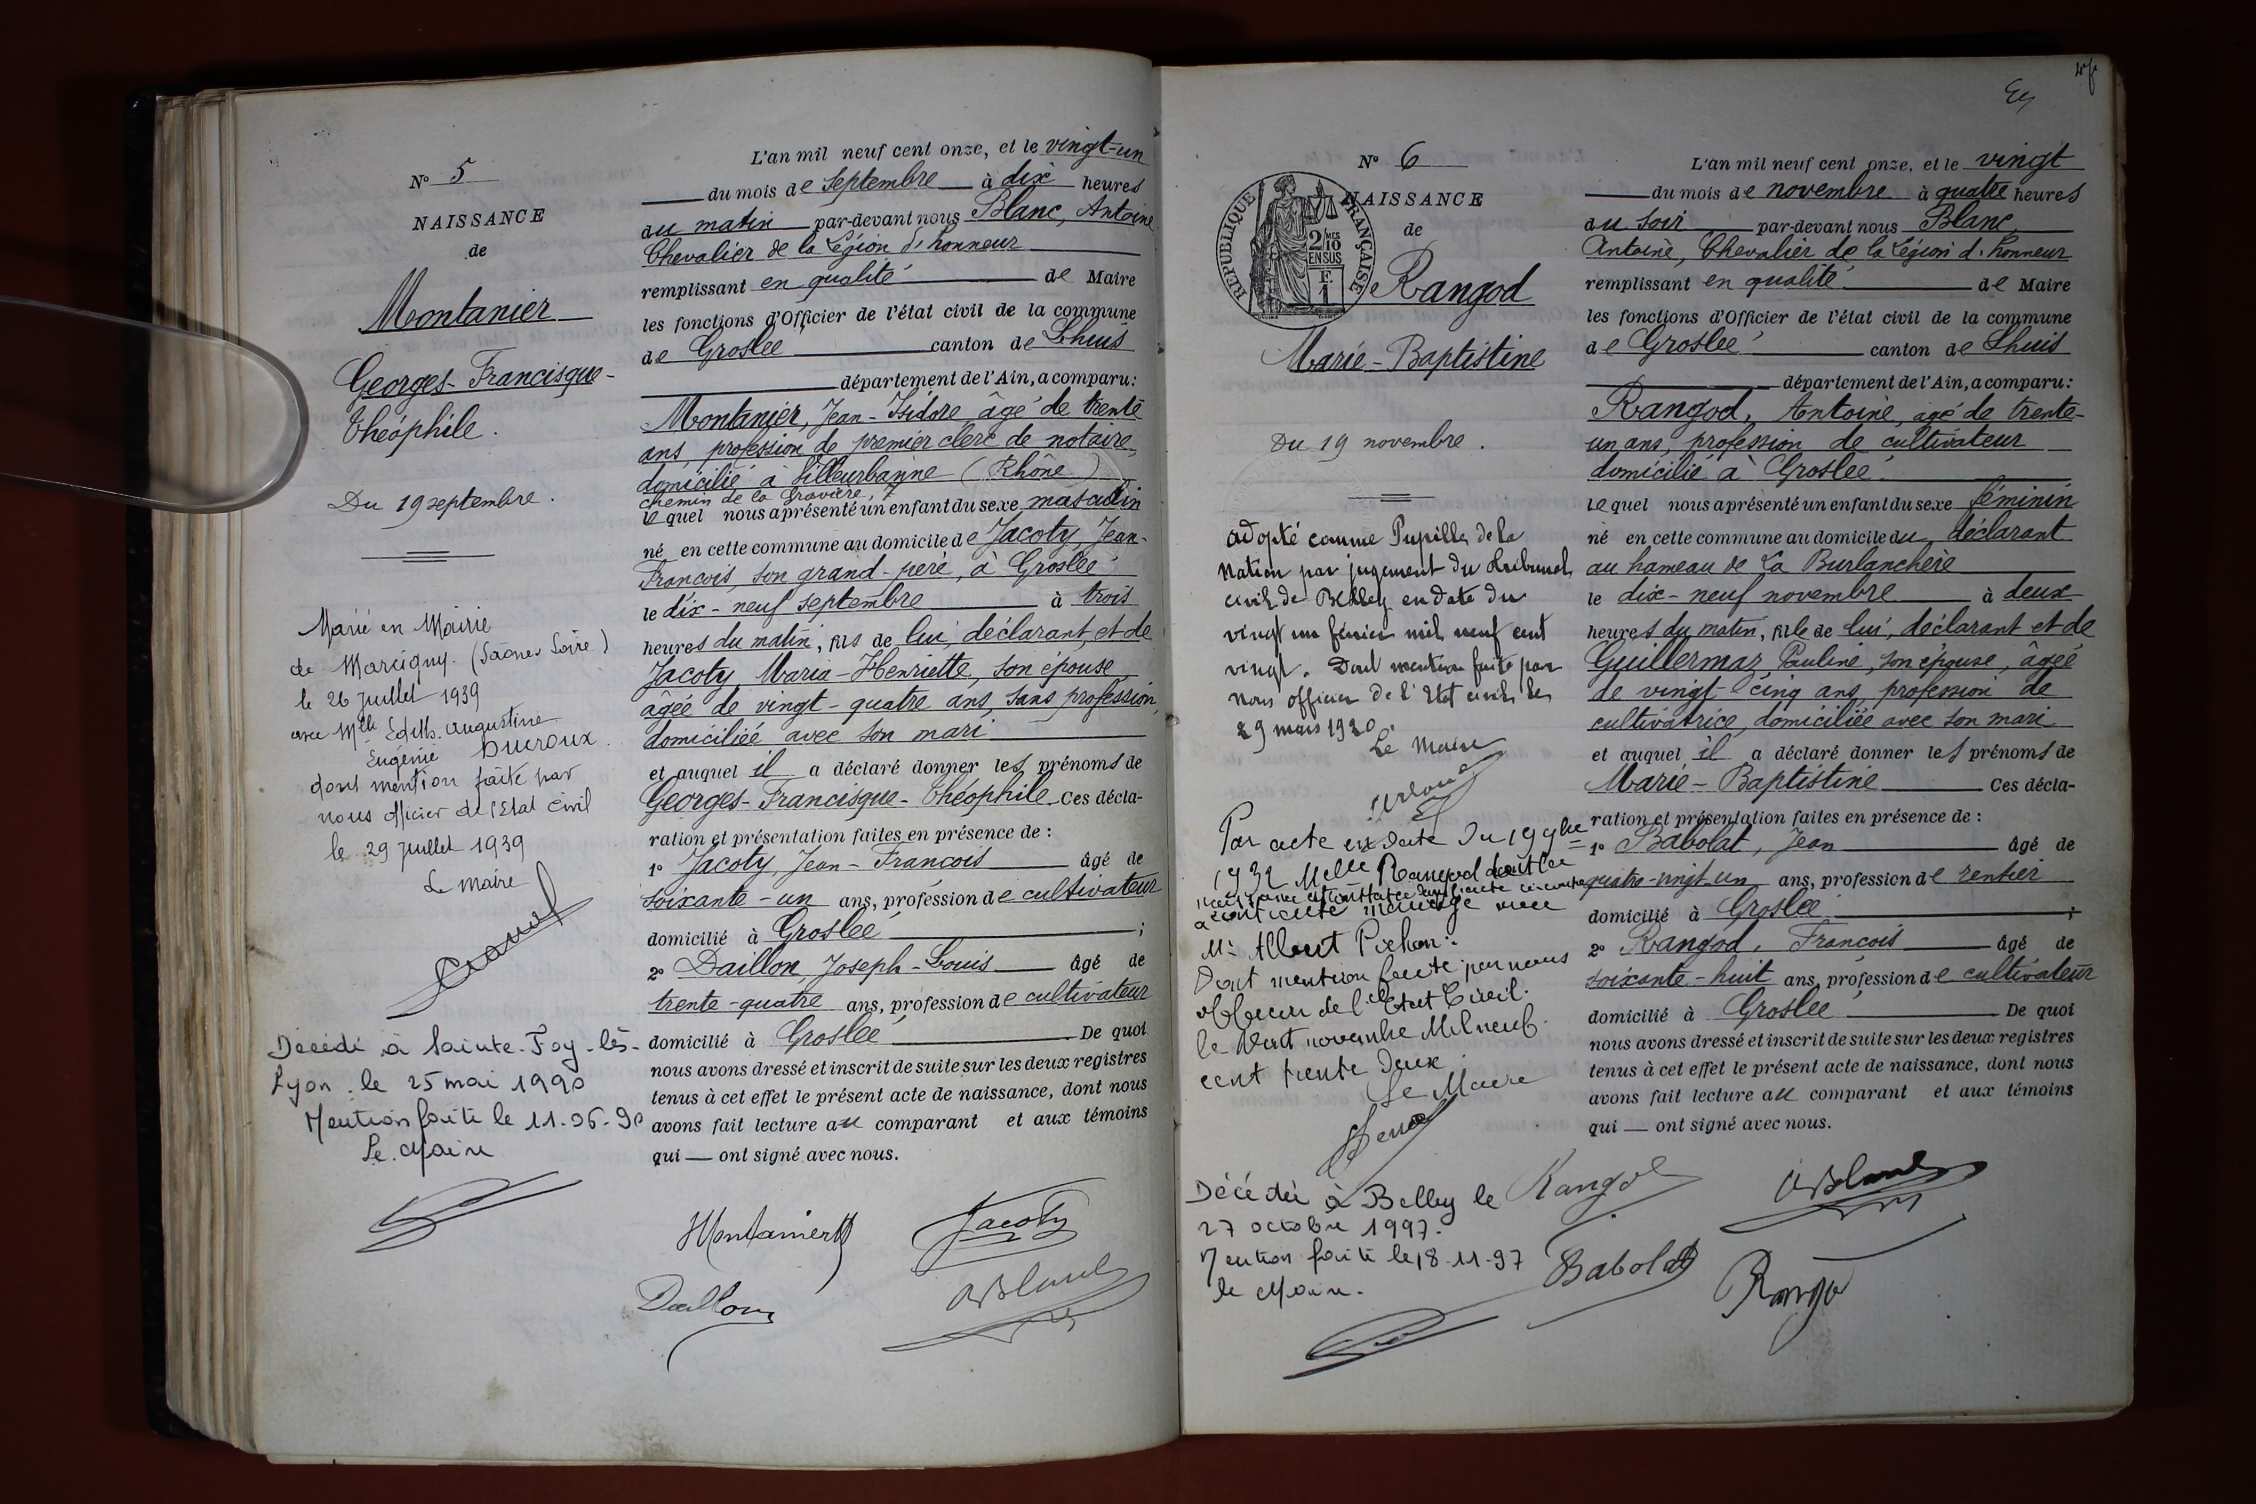 N° 5
NAISSANCE
de
Montanier
Georges-Francisque-
Théophile.
Du 19 septembre.
Marié en Mairie
de Marcigny. (Saône & Loire)
le 26 juillet 1939
avec Mlle Edith Augustine
Eugénie Ducroux.
dont mention faite par
nous officier de l'Etat Civil
le 29 juillet 1939
Le Maire
Décédé à Sainte-Foy-lès-
Lyon le 25 mai 1990
Mention faite le 11-06-90
Le Maire
L'an mil neuf cent onze, et le vingt-un
du mois de septembre à dix heures
du matin par-devant nous Blanc, Antoine
Chevalier de la Légion d'honneur
remplissant en qualité de Maire
les fonctions d'Officier de l'état civil de la commune
de Groslée canton de Lhuis
département de l'Ain, a comparu:
Montanier, Jean-Isidore âgé de trente
ans, profession de premier clerc de notaire,
domicilié à Villeurbanne (Rhône)
chemin de la Gravière, 7
lequel nous a présenté un enfant du sexe masculin
né en cette commune au domicile de Jacoty, Jean-
François, son grand-père, à Groslée
le dix-neuf septembre à trois
heures du matin, fils de lui, déclarant, et de
Jacoty, Maria-Henriette, son épouse,
âgée de vingt-quatre ans, sans profession,
domiciliée avec son mari
et auquel il a déclaré donner les prénoms de
Georges-Francisque-Théophile Ces décla-
ration et présentation faites en présence de :
1° Jacoty, Jean-François âgé de
soixante-un ans, profession de cultivateur
domicilié à Groslée ;
2° Daillon Joseph-Louis âgé de
trente-quatre ans, profession de cultivateur
domicilié à Groslée De quoi
nous avons dressé et inscrit de suite sur les deux registres
tenus à cet effet le présent acte de naissance, dont nous
avons fait lecture au comparant et aux témoins
qui — ont signé avec nous.
Montanier Jacoty
Daillon ABlanc
N° 6
NAISSANCE
de
RÉPUBLIQUE FRANÇAISE
2/10 MES
EN SUS
F.
1
Rangod
Marie-Baptistine
Du 19 novembre.
adopté comme Pupille de la
Nation par jugement du Tribunal
civil de Belley en date du
vingt un février mil neuf cent
vingt. Dont mention faite par
nous officier de l'Etat civil le
29 mars 1920.
Le Maire
Par acte en date du 19 9bre
1932 Melle Rangod dont la
naissance est constatée dans l'acte ci-contre
a contracté mariage avec
Mr Albert Pichon.
Dont mention faite par nous
officier de l'Etat Civil.
le vingt novembre Mil neuf
cent trente deux
Le Maire
Décédée à Belley le
27 octobre 1997.
Mention faite le 18-11-97
le Maire.
L'an mil neuf cent onze, et le vingt
du mois de novembre à quatre heures
du soir par-devant nous Blanc,
Antoine, Chevalier de la Légion d'honneur
remplissant en qualité de Maire
les fonctions d'Officier de l'état civil de la commune
de Groslée canton de Lhuis
département de l'Ain, a comparu:
Rangod, Antoine, âgé de trente-
un ans, profession de cultivateur
domicilié à Groslée
lequel nous a présenté un enfant du sexe féminin
né en cette commune au domicile du déclarant
au hameau de La Burlanchère
le dix-neuf novembre à deux
heures du matin, fille de lui, déclarant et de
Guillermaz Pauline, son épouse, âgée
de vingt-cinq ans, profession de
cultivatrice, domiciliée avec son mari
et auquel il a déclaré donner les prénoms de
Marie-Baptistine Ces décla-
ration et présentation faites en présence de :
1° Babolat, Jean âgé de
quatre-vingt-un ans, profession de rentier
domicilié à Groslée ;
2° Rangod, François âgé de
soixante-huit ans, profession de cultivateur
domicilié à Groslée De quoi
nous avons dressé et inscrit de suite sur les deux registres
tenus à cet effet le présent acte de naissance, dont nous
avons fait lecture au comparant et aux témoins
qui — ont signé avec nous.
Rangod ABlanc
Babolat Rangod